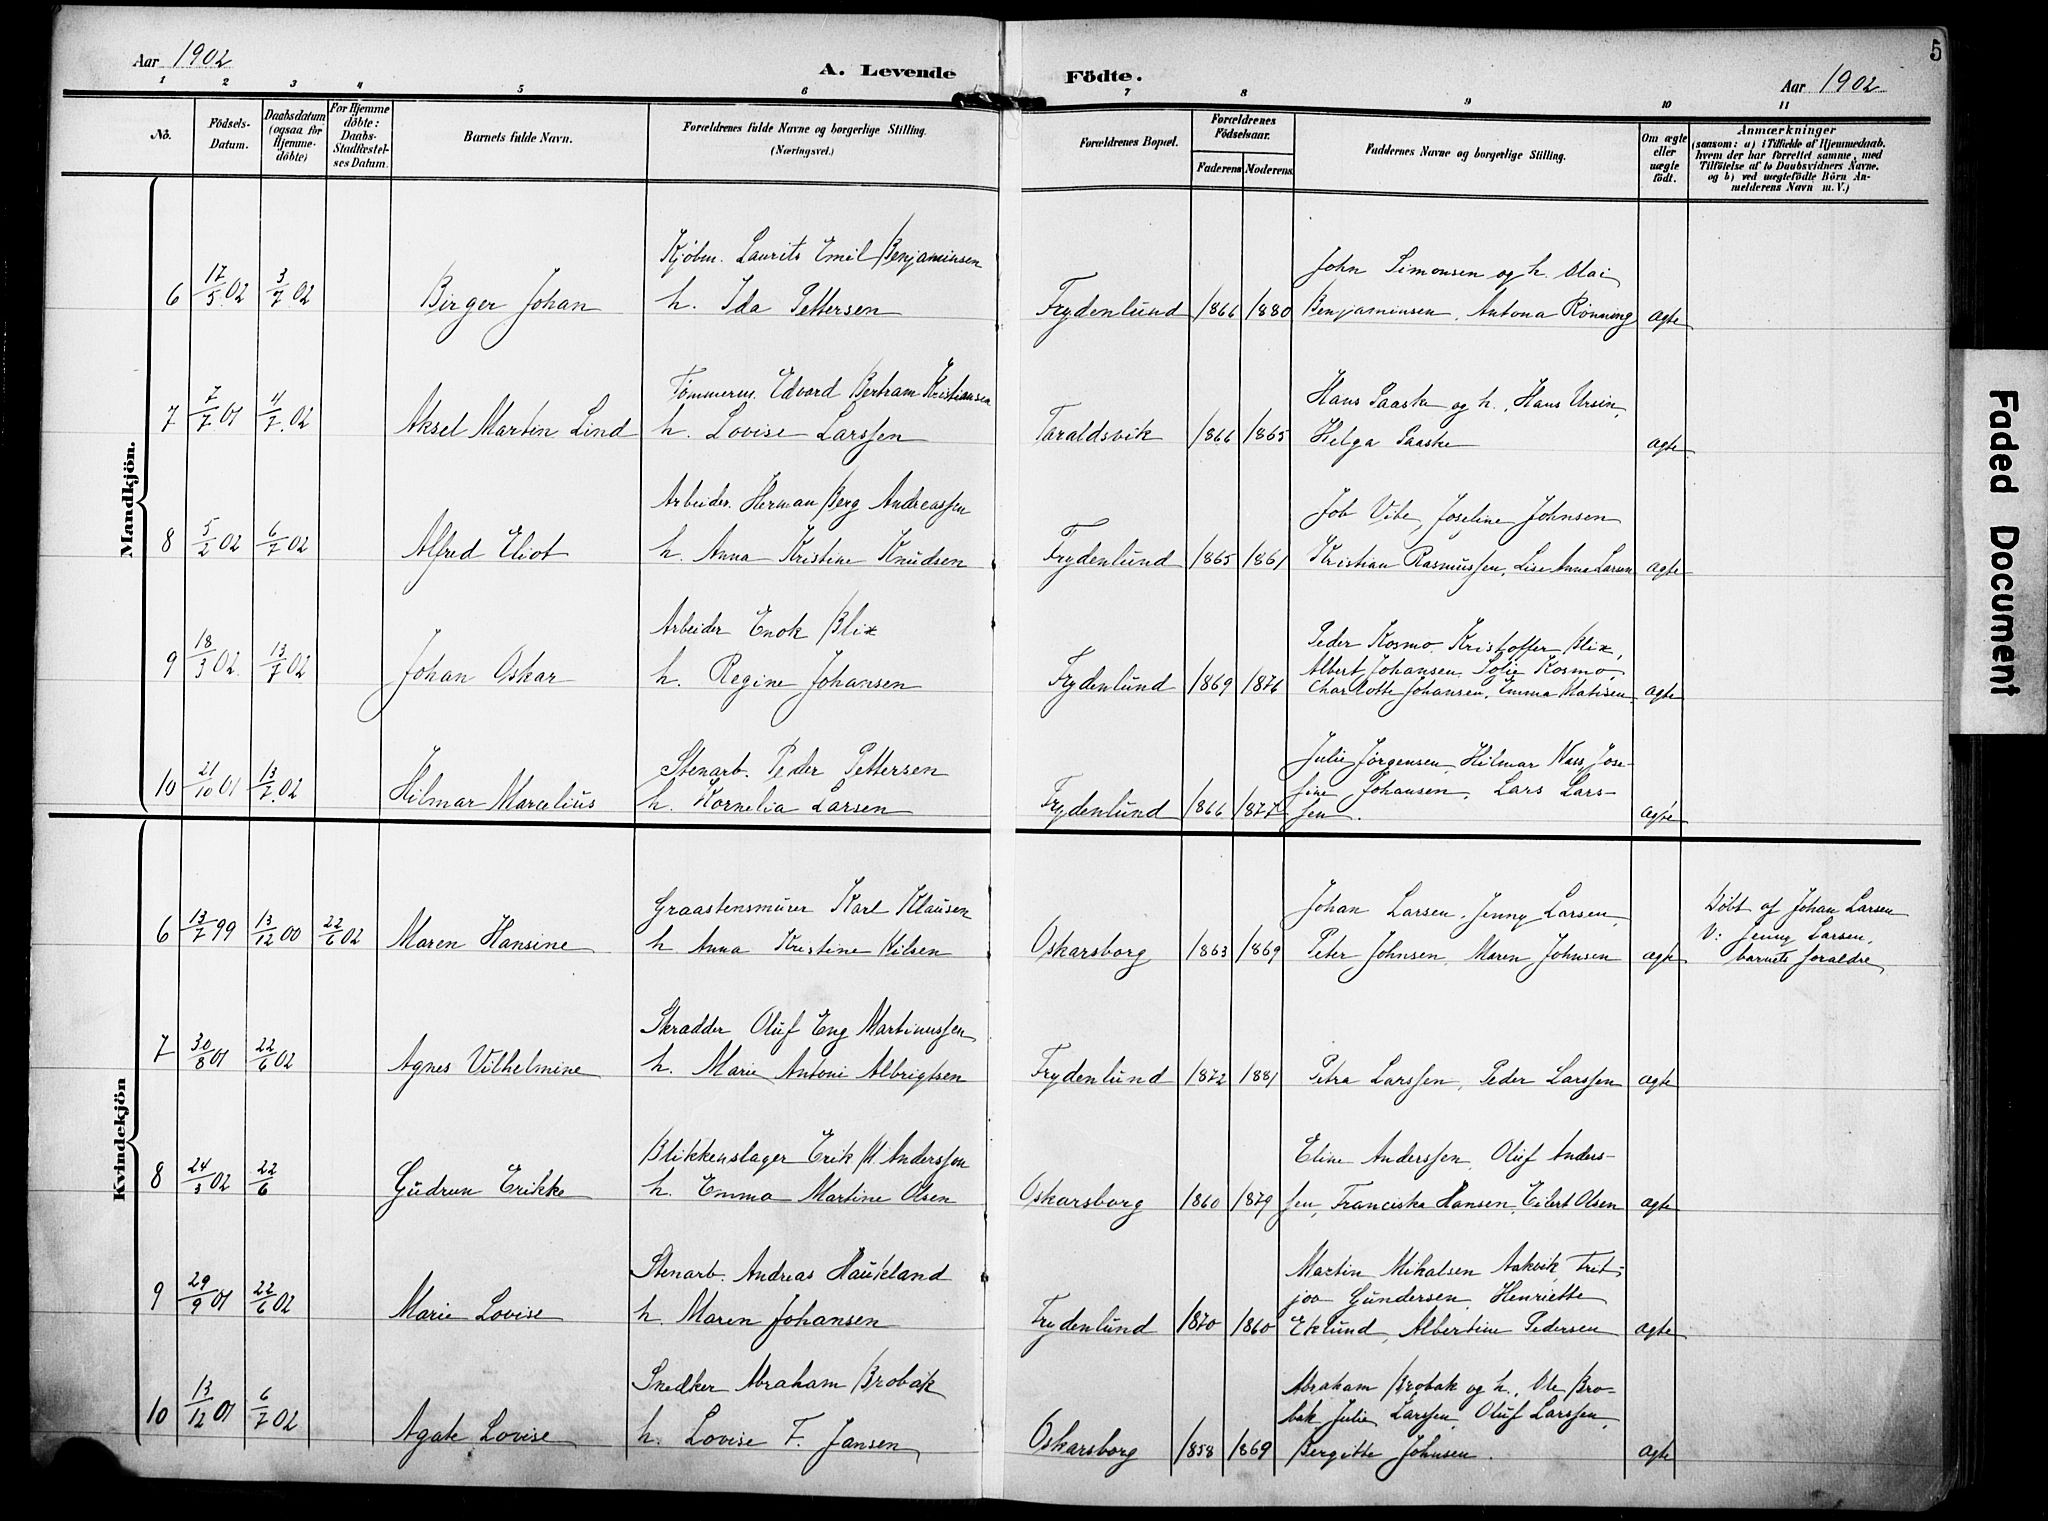 5
Aar 1902
A. Levende Födte.
Aar 1902
1 2 3 4 5 6 7 8 9 10 11
Nô.
Födsels-Datum.
Daabsdatum (ogsaa for Hjemmedöbte)
For Hjemmedöbte: Daabs-Stadfæstelses Datum.
Barnets fulde Navn.
Forældrenes fulde Navne og borgerlige Stilling. (Næringsvei.)
Forældrenes Bopæl.
Forældrenes Födselsaar.
Faderens Moderens
Faddernes Navne og borgerlige Stilling.
Om ægte eller uægte födt.
Anmærkninger
(saasom: a) i Tilfælde af Hjemmedaab, hvem der har forrettet samme, med Tilföielse af to Daabsvidners Navne. og b) ved uægtefödte Börn Anmelderens Navn m. V.)
Mandkjön.
Kjöbm. Laurits Emil Benjaminsen
John Simonsen og h. Olai
6 17/5 02 3/7 02 Birger Johan h. Ida Pettersen Frydenlund 1866 1880 Benjaminsen, Antona Rönning ægte
Tömmerm. Edvard Bertram Kristiansen
Hans Saaske og h., Hans Ursin,
7 7/7 01 4/7 02 Aksel Martin Lind h. Lovise Larssen Taraldsvik 1866 1865 Helga Saaske ægte
Arbeider Herman Berg Andreassen
Job Vibe, Joseline Johnsen
8 5/2 02 6/7 02 Alfred Eliot h. Anna Kristine Knudsen Frydenlund 1865 1861 Kristian Rasmussen, Lise Anna Larsen ægte
Arbeider Enok Blix
Peder Kosmo. Kristoffer Blix,
Albert Johansen, Solie Kosmo,
9 18/3 02 13/7 02 Johan Oskar h. Regine Johansen Frydenlund 1869 1876 Charlotte Johansen, Emma Matisen ægte
Stenarb. Peder Pettersen
Julie Jørgensen, Hilmar Næss, Jose-
fine Johansen, Lars Lars-
10 21/10 01 13/7 02 Hilmar Marcelius h. Kornelia Larsen Frydenlund 1866 1877 sen. ægte
Kvindekjön
Graastensmürer Karl Klausen
Johan Larsen, Jenny Larsen,
Döbt af Johan Larsen
V: Jenny Larsen,
6 13/7 99 13/12 00 22/6 02 Maren Hansine h. Anna Kristine Nilsen Oskarsborg 1863 1869 Peter Johnsen, Maren Johnsen ægte barnets foraldre
Skradder Oluf Eng Martinussen
7 30/8 01 22/6 02 Agnes Vilhelmine h. Marie Antoni Albrigtsen Frydenlund 1872 1881 Petra Larssen, Peder Larssen ægte
Blikkenslager Erik M. Anderssen
Eline Anderssen, Oluf Anders-
8 24/3 02 22/6 Gudrun Erikke h. Emma Martine Olsen Oskarsborg 1860 1879 sen, Franciska Hansen, Eilert Olsen ægte
Stenarb. Andreas Haukland
Martin Mikalsen Aakvik, Frit-
jov Gundersen, Henriette
9 29/9 01 22/6 02 Marie Lovise h. Maren Johansen Frydenlund 1870 1860 Eklund, Albertine Pedersen ægte
Snedker Abraham Brobak
Abraham Brobak og h., Ole Bro-
bak Julie Larssen, Oluf Larssen,
10 13/12 01 6/7 02 Agate Lovise h. Lovise F. Jansen Oskarsborg 1858 1869 Bergitte Johnsen. ægte
Faded Document